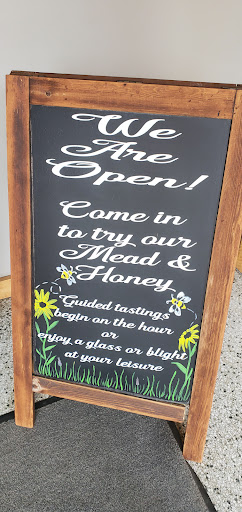 We
Are
Open!
Come in
to try our
Mead &
Honey
Guided tastings
begin on the hour
or
enjoy a glass or blight
at your leisure